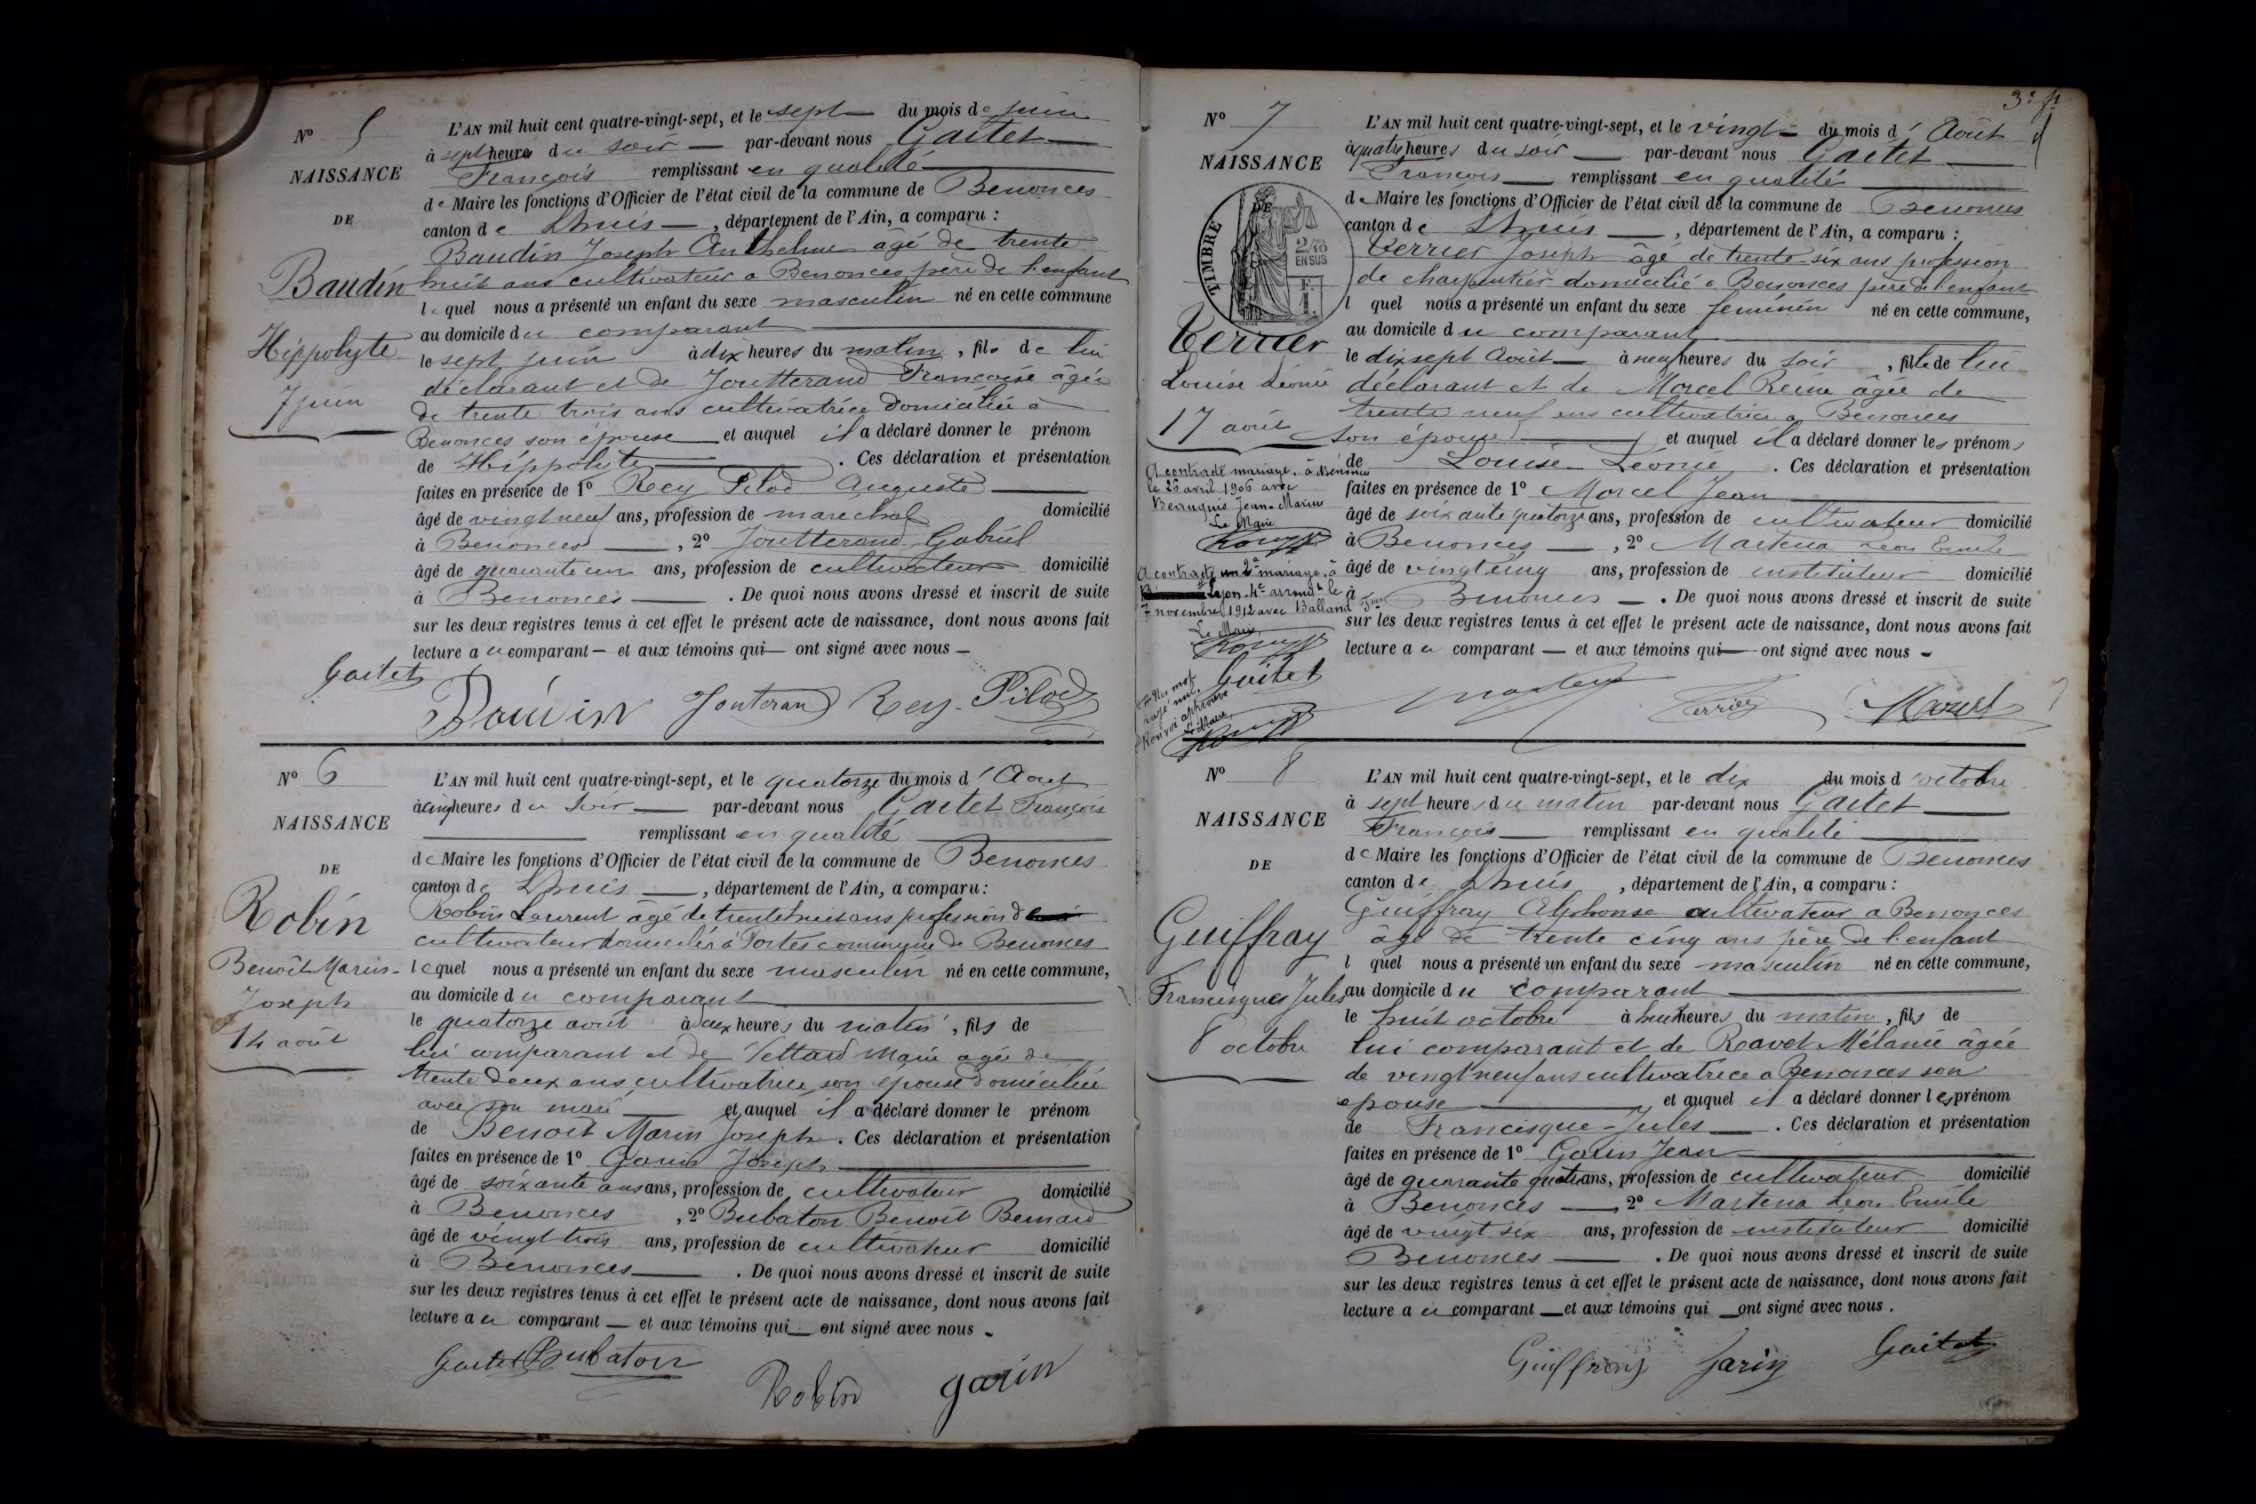 N° 5
NAISSANCE
DE
Baudin
Hippolyte
7 juin
L'AN mil huit cent quatre-vingt-sept, et le sept du mois de juin
à sept heures du soir par-devant nous Gaitet
François remplissant en qualité
de Maire les fonctions d'Officier de l'état civil de la commune de Benonces
canton de Lhuis, département de l'Ain, a comparu :
Baudin Joseph Anthelme âgé de trente
huit ans cultivateur a Benonces père de l'enfant
lequel nous a présenté un enfant du sexe masculin né en cette commune
au domicile du comparant
le sept juin à dix heures du matin, fils de lui
déclarant et de Joutterand Françoise âgée
de trente trois ans cultivatrice domiciliée à
Benonces son épouse et auquel il a déclaré donner le prénom
de Hippolyte. Ces déclaration et présentation
faites en présence de 1° Rey Pilod Auguste
âgé de vingt neuf ans, profession de marechal domicilié
à Benonces, 2° Joutterand Gabriel
âgé de quarante un ans, profession de cultivateur domicilié
à Benonces. De quoi nous avons dressé et inscrit de suite
sur les deux registres tenus à cet effet le présent acte de naissance, dont nous avons fait
lecture au comparant — et aux témoins qui — ont signé avec nous —
Gaitet
Baudin Jouterand Rey-Pilod
N° 6
NAISSANCE
DE
Robin
Benoît Marin-
Joseph
14 août
L'AN mil huit cent quatre-vingt-sept, et le quatorze du mois d'Aout
à cinq heures du soir par-devant nous Gaitet François
remplissant en qualité
de Maire les fonctions d'Officier de l'état civil de la commune de Benonces
canton de Lhuis, département de l'Ain, a comparu :
Robin Laurent âgé de trente huit ans profession de
cultivateur domicilié à Portes commune de Benonces
lequel nous a présenté un enfant du sexe masculin né en cette commune,
au domicile du comparant
le quatorze août à deux heures du matin, fils de
lui comparant et de Vettard Marie agée de
trente deux ans cultivatrice son épouse domiciliée
avec son mari et auquel il a déclaré donner le prénom
de Benoit Marin Joseph. Ces déclaration et présentation
faites en présence de 1° Garin Joseph
âgé de soixante ans ans, profession de cultivateur domicilié
à Benonces, 2° Bubaton Benoît Bernard
âgé de vingt trois ans, profession de cultivateur domicilié
à Benonces. De quoi nous avons dressé et inscrit de suite
sur les deux registres tenus à cet effet le présent acte de naissance, dont nous avons fait
lecture au comparant — et aux témoins qui — ont signé avec nous —
Gaitet Bubaton
Robin garin
3e f.
N° 7
NAISSANCE
DE
TIMBRE
2/10 EN SUS
F.
1
Verrier
Louise Léonie
17 août
A contracté mariage, à Bénonces
le 26 avril 1906 avec
Berruguis Jean-Marius
Le Maire
A contracté un 2e mariage, à
Lyon 4e arrondt le
7 novembre 1912 avec Balland
Le Maire
mot
rayé nul.
Renvoi approuvé
Le Maire
L'AN mil huit cent quatre-vingt-sept, et le vingt du mois d'Août
à quatre heures du soir par-devant nous Gaitet
François remplissant en qualité
de Maire les fonctions d'Officier de l'état civil de la commune de Benonces
canton de Lhuis, département de l'Ain, a comparu :
Verrier Joseph âgé de trente-six ans profession
de charpentier domicilié à Benonces père de l'enfant
l quel nous a présenté un enfant du sexe feminin né en cette commune,
au domicile du comparant
le dix sept Août à neuf heures du soir, fille de lui
déclarant et de Morcel Reine âgée de
trente neuf ans cultivatrice a Benonces
son épouse et auquel il a déclaré donner les prénoms
de Louise Léonie. Ces déclaration et présentation
faites en présence de 1° Morcel Jean
âgé de soixante quatorze ans, profession de cultivateur domicilié
à Benonces, 2° Martena Léon Emile
âgé de vingt cinq ans, profession de instituteur domicilié
à Benonces. De quoi nous avons dressé et inscrit de suite
sur les deux registres tenus à cet effet le présent acte de naissance, dont nous avons fait
lecture au comparant — et aux témoins qui — ont signé avec nous —
Gaitet Martena Verrier Morcel
N° 8
NAISSANCE
DE
Guiffray
Francisques Jules
8 octobre
L'AN mil huit cent quatre-vingt-sept, et le dix du mois d'octobre
à sept heures du matin par-devant nous Gaitet
François remplissant en qualité
de Maire les fonctions d'Officier de l'état civil de la commune de Benonces
canton de Lhuis, département de l'Ain, a comparu :
Guiffray Alphonse cultivateur a Benonces
âgé de trente cinq ans père de l'enfant
l quel nous a présenté un enfant du sexe masculin né en cette commune,
au domicile du comparant
le huit octobre à huit heures du matin, fils de
lui comparant et de Ravet Mélanie âgée
de vingt neuf ans cultivatrice a Benonces son
epouse et auquel il a déclaré donner les prénom
de Francisque-Jules. Ces déclaration et présentation
faites en présence de 1° Garin Jean
âgé de quarante quatre ans, profession de cultivateur domicilié
à Benonces, 2° Martena Léon Emile
âgé de vingt six ans, profession de instituteur domicilié
Benonces. De quoi nous avons dressé et inscrit de suite
sur les deux registres tenus à cet effet le présent acte de naissance, dont nous avons fait
lecture au comparant — et aux témoins qui — ont signé avec nous.
Guiffray Jarin Gaitet